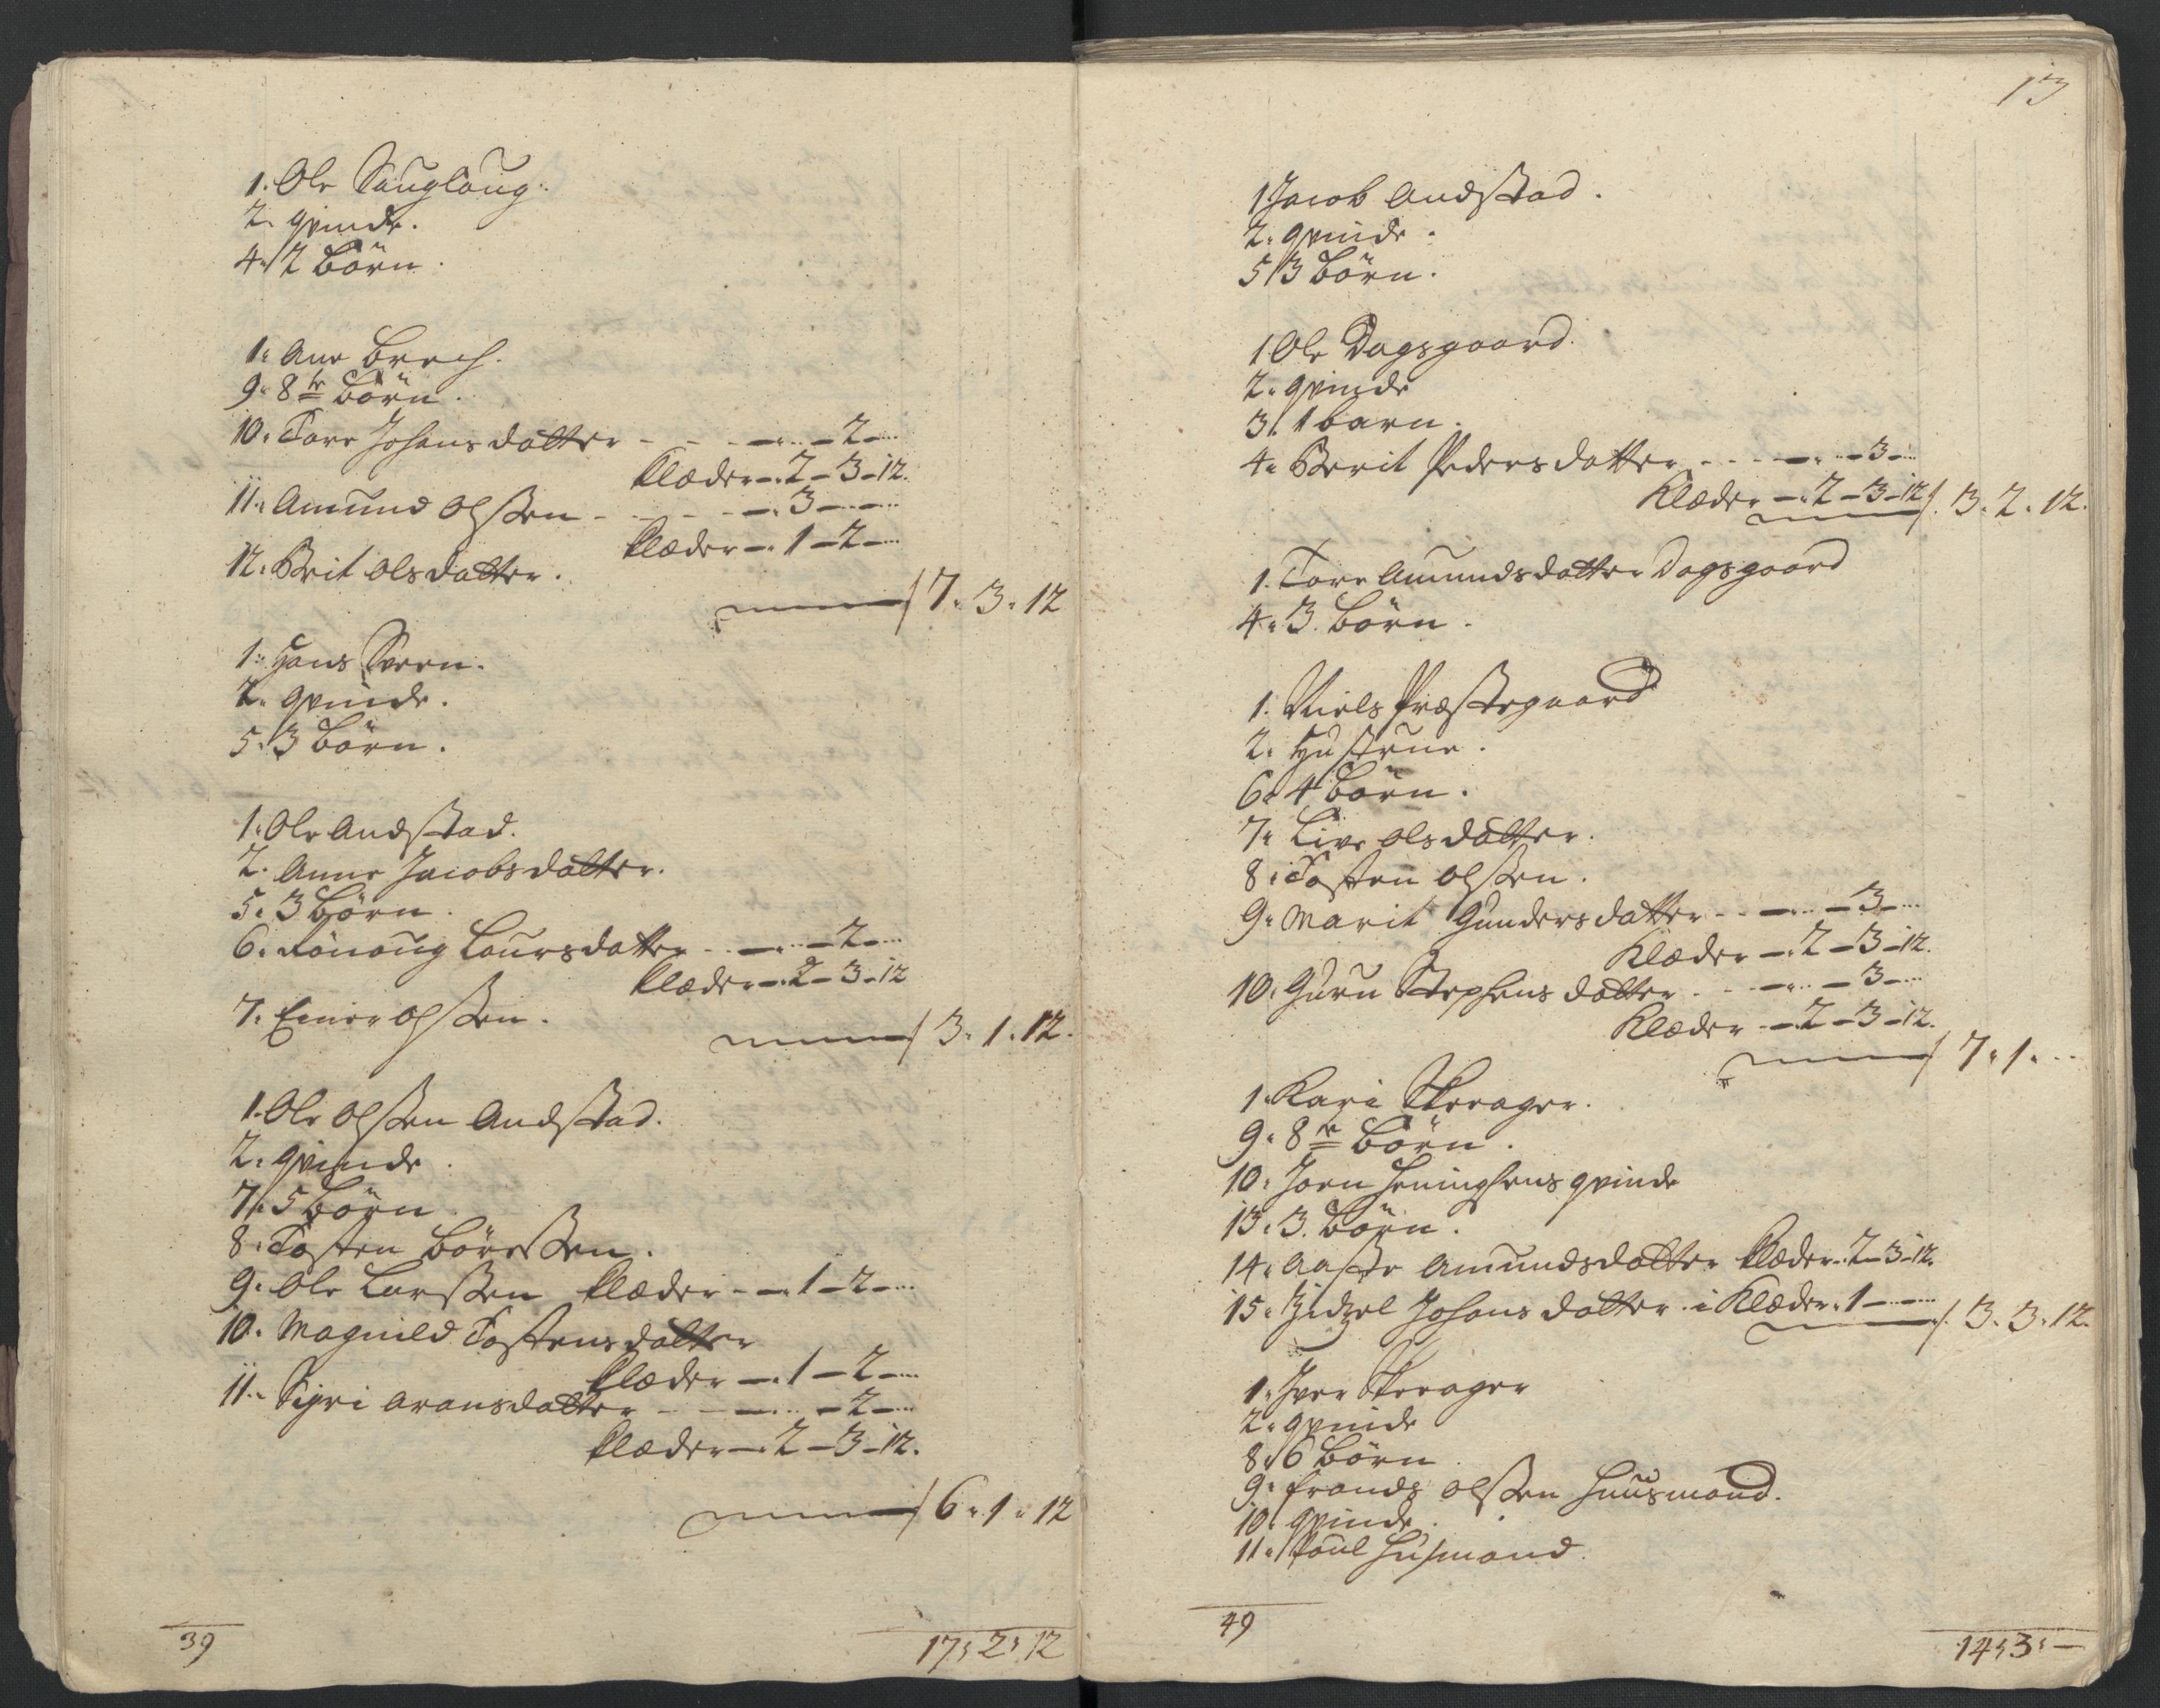 1. Ole Sauglaug.
2. qvinde.
4. 2 Börn.
1. Ane Brech.
9. 8te Börn.
10. Tore Johansdatter - - - 2 -
Klæder - 2 - 3 - 12.
11. Amund Olssen - - - 3 -
Klæder - 1 - 2 -
12. Brit Olsdatter.
7. 3. 12
1. Hans Sveen.
2. qvinde.
5. 3 Börn.
1. Ole Andstad.
2. Anne Jacobsdatter.
5. 3 Börn.
6. Rönoug Laursdatter - - 2 -
Klæder - 2 - 3 - 12
7. Einer Olssen.
3. 1. 12.
1. Ole Olssen Andstad.
2. qvinde.
7. 5 Börn.
8. Tosten Böressen.
9. Ole Larssen Klæder - - 1 - 2 -
10. Magnild Tostensdatter
Klæder - 1 - 2 -
11. Sigri Aronsdatter - - - 2 -
Klæder - 2 - 3 - 12.
6. 1. 12
39
17, 2, 12
13
1 Jacob Andstad.
2. qvinde.
5 3 Börn.
1 Ole Dagsgaard.
2. qvinde
3. 1 barn.
4. Berit Pedersdatter - - - 3 -
Klæder - 2 - 3 - 12 3. 2. 12.
1. Tore Amundsdatter Dagsgaard
4. 3. Börn.
1. Niels Præstegaard
2. Hustrue.
6. 4 Börn.
7. Live Olsdatter.
8. Tosten Olssen.
9. Marit Gundersdatter - - - 3 -
Klæder - 2 - 3 - 12.
10. Guru Stephensdatter - - - 3 -
Klæder - 2 - 3 - 12.
7. 1. -
1. Kari Skerager.
9. 8te Börn.
10. Joen Heninghens qvinde
13. 3. Börn.
14. Aaste Amundsdatter Klæder. 2 - 3 - 12.
15. Zidzel Johansdatter i Klæder. 1 - - 3. 3. 12.
1. Iver Skerager
2. qvinde
8. 6 Börn.
9. Frands Olssen Huusmand.
10. qvinde.
11. Poul Husmand.
49
14, 3, -